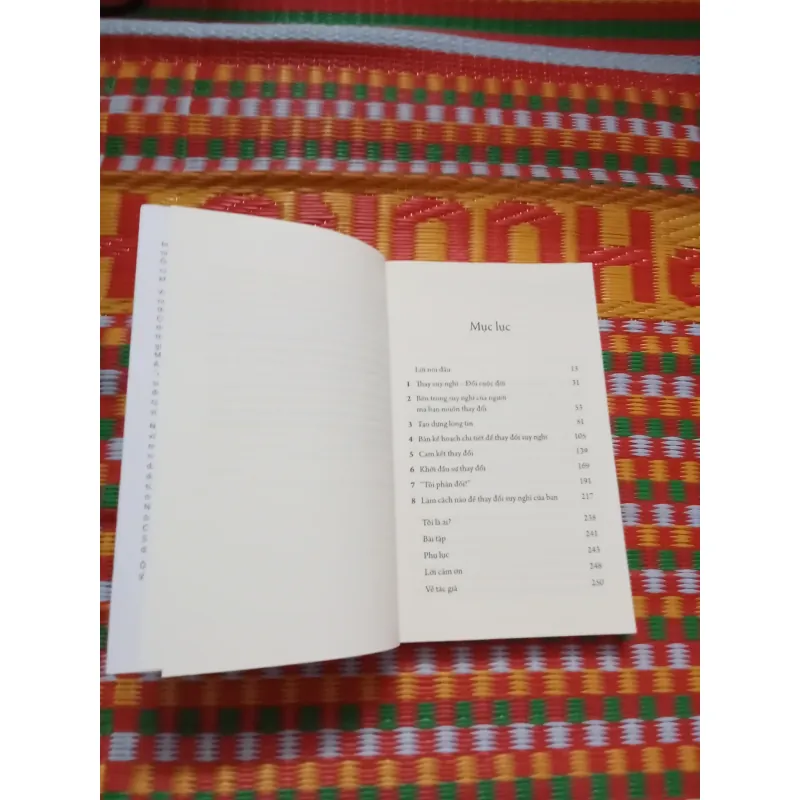 Mục lục
Lời nói đầu 13
1 Thay suy nghĩ – Đổi cuộc đời 31
2 Bên trong suy nghĩ của người
mà bạn muốn thay đổi 53
3 Tạo dựng lòng tin 81
4 Bản kế hoạch chi tiết để thay đổi suy nghĩ 105
5 Cam kết thay đổi 139
6 Khởi đầu sự thay đổi 169
7 "Tôi phản đối!" 191
8 Làm cách nào để thay đổi suy nghĩ của bạn 217
Tôi là ai? 238
Bài tập 241
Phụ lục 245
Lời cảm ơn 248
Về tác giả 250